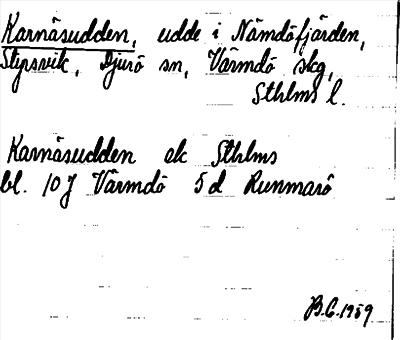 Karnäsudden, udde i Nämdöfjärden,
Styrsvik, Djurö sn, Värmdö skg,
Sthlms l.
Karnäsudden ek Sthlms
bl. 10J Värmdö 5d Runmarö
B.C. 1959